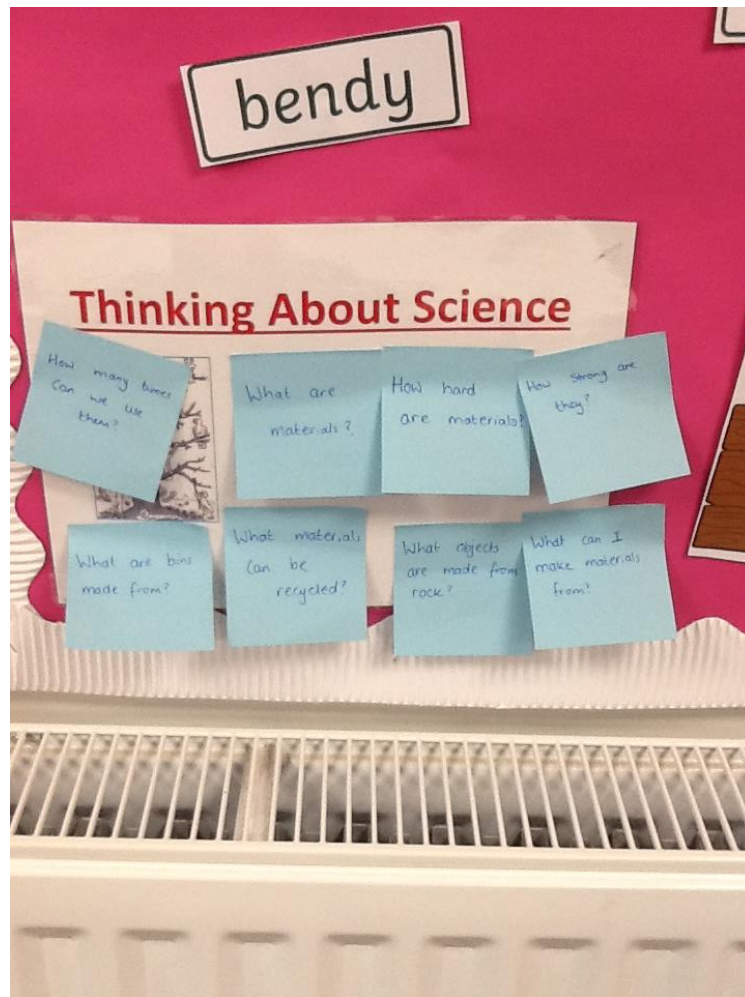 bendy
Thinking About Science
How many times
Can we use
them?
What are
materials?
How hard
are materials?
How strong are
they?
What are bins
made from?
What materials
Can be
recycled?
What objects
are made from
rock?
What can I
make materials
from?